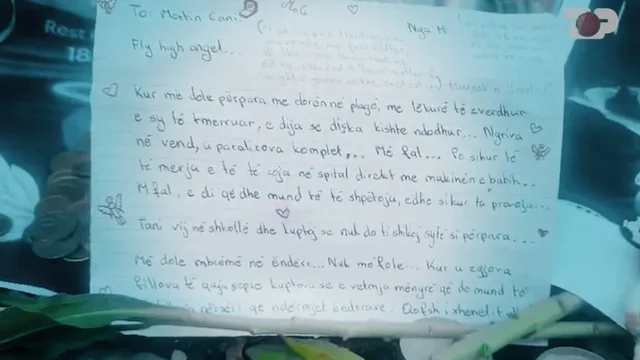 Rest
18
To: Martin Cani
Nga M
Fly high angel...
Kur me dole përpara me dorën në plagë, me lëkurë të zverdhur
e sy të tmerruar, e dija se diçka kishte ndodhur... Ngriva
në vend, u paralizova komplet... Më fal... Po sikur të
të merrja e të të çoja në spital direkt me makinën e babit..
M fal, e di që dhe mund të të shpëtoja, edhe sikur ta provoja...
Tani vij në shkollë dhe kuptoj se nuk do ti shkoj sytë si përpara...
Më dole mbrëmë në ëndërr... Nuk më fole... Kur u zgjova
fillova të qaja, sepse kuptova se e vetmja mënyrë që do mund të
përsëri qe ndërmjet ëndrrave. Qofsh i xhenetit